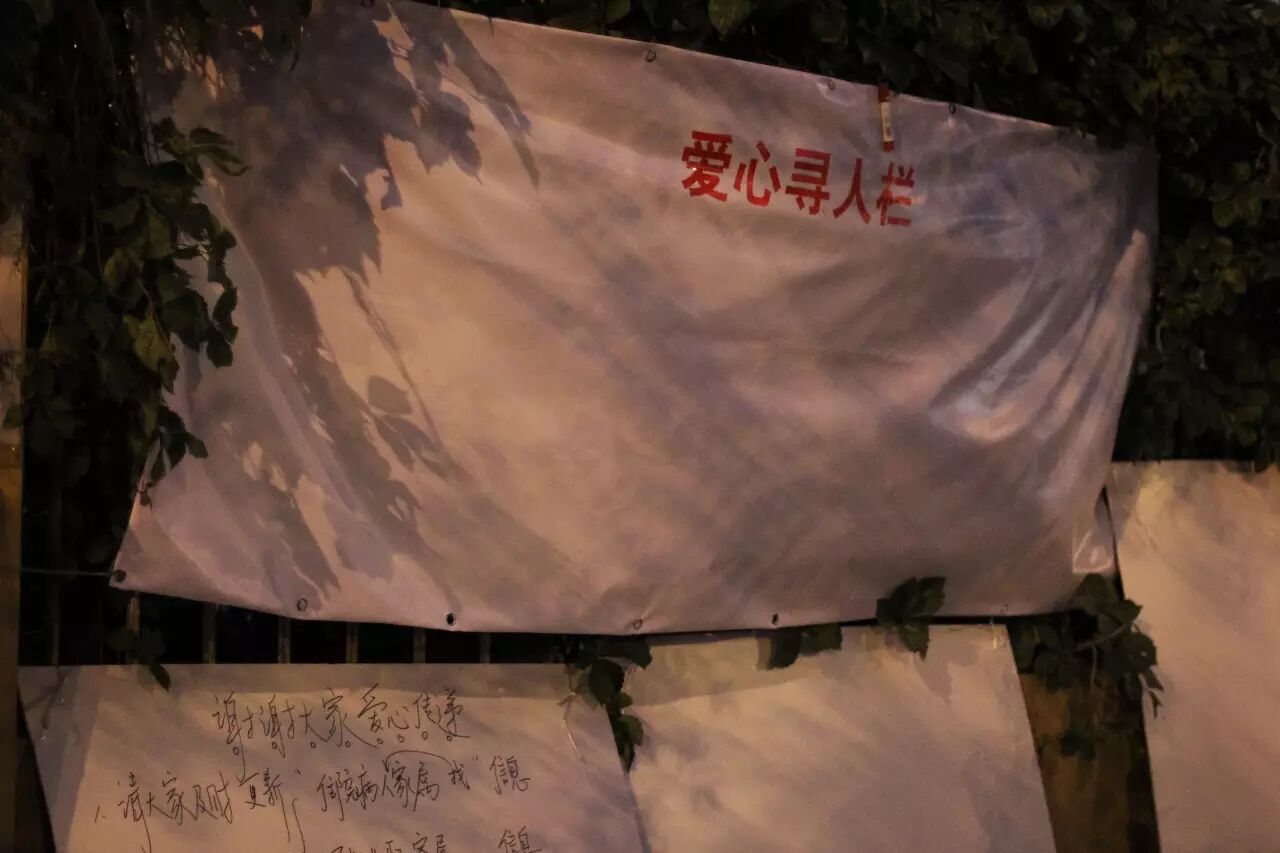 爱心寻人栏
谢谢大家爱心传递
1、请大家及时更新“住院病人家属找”信息
家属 信息